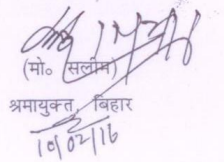 (मो० सलीम)
श्रमायुक्त, बिहार
10/02/16